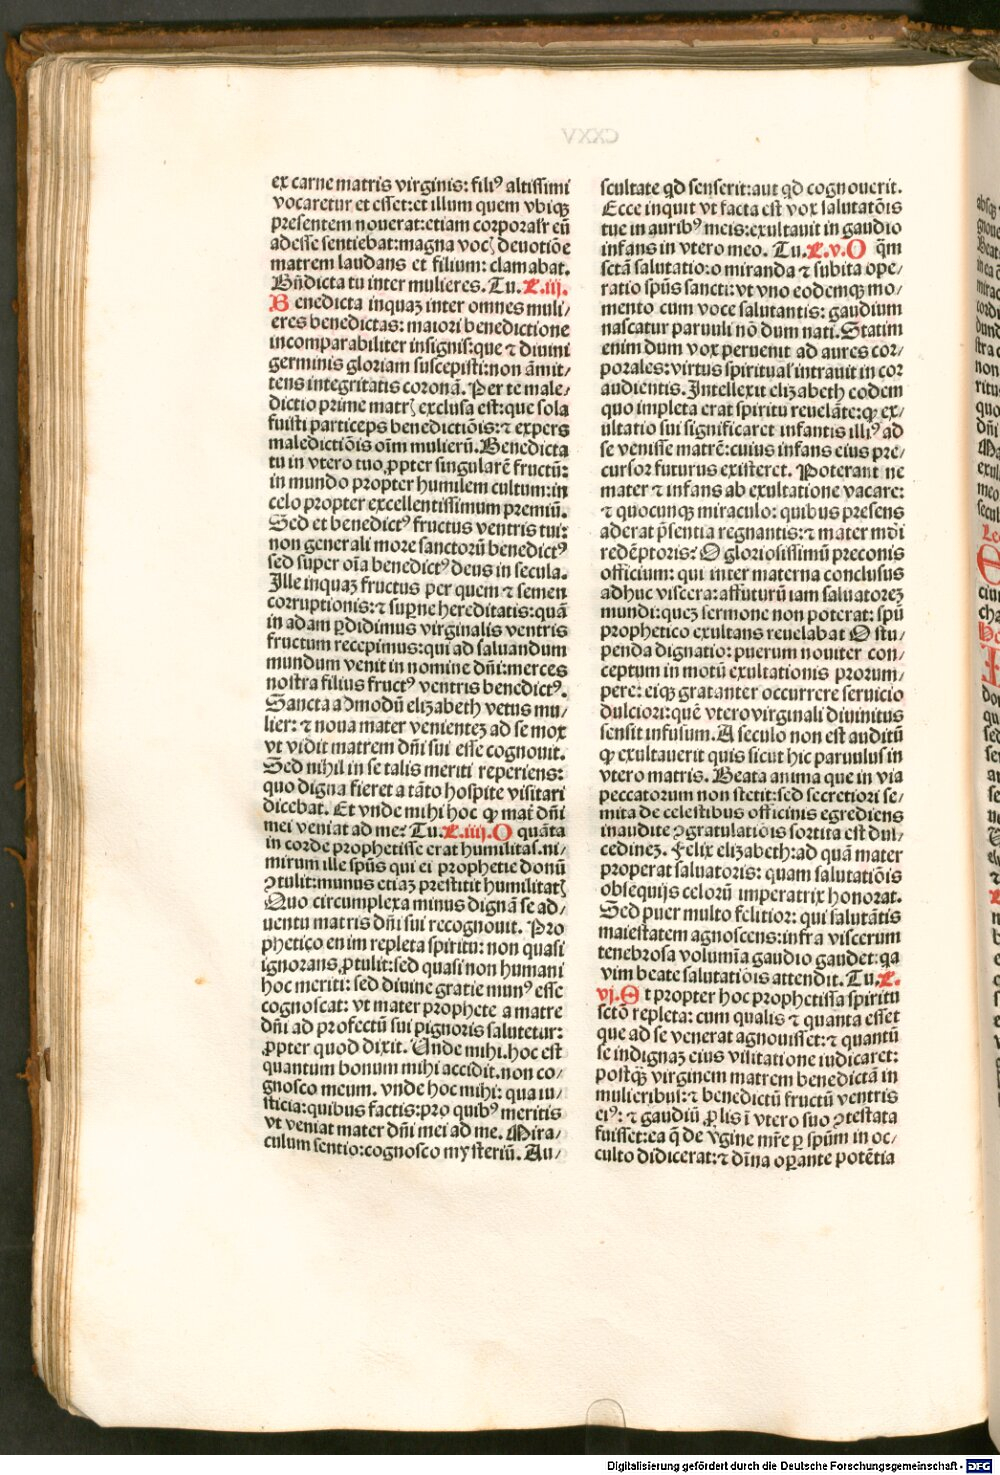 ex carne matris virginis: filiꝰ altissimi
vocaretur et esset:et illum quem vbiqꝫ
presentem nouerat:etiam corporalr̃ eũ
adesse sentiebat:magna vocꝭ deuotiõe
matrem laudans et filium: clamabat.
Bñdicta tu inter mulieres. Tu. L.iij.
Benedicta inquaꝫ inter omnes muli/
eres benedictas: maiori benedictione
incomparabiliter insignis:que ⁊ diuini
germinis gloriam suscepisti:non ãmit/
tens integritatis coronã. Per te male/
dictio prime matrꝭ exclusa est:que sola
fuisti particeps benedictiõis:⁊ expers
maledictiõis oĩm mulierũ. Benedicta
tu in vtero tuo ꝓpter singularẽ fructũ:
in mundo propter humilem cultum:in
celo propter excellentissimum premiũ.
Sed et benedictꝰ fructus ventris tui:
non generali more sanctorũ benedictꝰ
sed super oĩa benedictꝰ deus in secula.
Ille inquaꝫ fructus per quem ⁊ semen
corruptionis:⁊ suꝑne hereditatis:quã
in adam ꝑdidimus virginalis ventris
fructum recepimus:qui ad saluandum
mundum venit in nomine dñi:merces
nostra filius fructꝰ ventris benedictꝰ.
Sancta admodũ elizabeth vetus mu/
lier: ⁊ noua mater venienteꝫ ad se mox
vt vidit matrem dñi sui esse cognouit.
Sed nihil in se talis meriti reperiens:
quo digna fieret a tãto hospite visitari
dicebat. Et vnde mihi hoc ꝙ mat̃ dñi
mei veniat ad me? Tu. L.iiij. O quãta
in corde prophetisse erat humilitas. ni/
mirum ille spũs qui ei prophetie donũ
ꝯtulit:munus etiaꝫ prestitit humilitatꝭ
Quo circumplexa minus dignã se ad/
uentu matris dñi sui recognouit. Pro
phetico enim repleta spiritu: non quasi
ignorans ꝓtulit:sed quasi non humani
hoc meriti: sed diuine gratie munꝰ esse
cognoscat: vt mater prophete a matre
dñi ad profectũ sui pignoris salutetur:
ꝓpter quod dixit. Unde mihi.hoc est
quantum bonum mihi accidit.non co/
gnosco meum. vnde hoc mihi: qua iu/
sticia:quibus factis:pro quibꝰ meritis
vt veniat mater dñi mei ad me. Mira/
culum sentio:cognosco mysteriũ. Au/
scultate qd̃ senserit:aut qd̃ cognouerit.
Ecce inquit vt facta est vox salutatõis
tue in auribꝰ meis:exultauit in gaudio
infans in vtero meo. Tu. L.v. O q̃m
sctã salutatio:o miranda ⁊ subita ope/
ratio spũs sancti: vt vno eodemqꝫ mo/
mento cum voce salutantis: gaudium
nascatur paruuli nõ dum nati. Statim
enim dum vox peruenit ad aures cor/
porales: virtus spiritual' intrauit in cor
audientis. Intellexit elizabeth eodem
quo impleta erat spiritu reuelãte:ꝙ ex/
ultatio sui significaret infantis illiꝰ ad
se venisse matrẽ:cuius infans eius pre/
cursor futurus existeret. Poterant ne
mater ⁊ infans ab exultatione vacare:
⁊ quocunqꝫ miraculo: quibus presens
aderat p̃sentia regnantis:⁊ mater mũdi
redẽptoris? O gloriosissimũ preconis
officium: qui inter materna conclusus
adhuc viscera: affuturũ iam saluatoreꝫ
mundi:queꝫ sermone non poterat: spũ
prophetico exultans reuelabat O stu/
penda dignatio: puerum nouiter con/
ceptum in motũ exultationis prorum/
pere: eiqꝫ gratanter occurrere seruicio
dulciori:quẽ vtero virginali diuinitus
sensit infusum. A seculo non est auditũ
ꝙ exultauerit quis sicut hic paruulus in
vtero matris. Beata anima que in via
peccatorum non stetit:sed secretiori se/
mita de celestibus officinis egrediens
inaudite ꝯgratulatiõis sortita est dul/
cedineꝫ. Felix elizabeth:ad quã mater
properat saluatoris: quam salutatiõis
obsequijs celorũ imperatrix honorat.
Sed puer multo felitior: qui salutãtis
maiestatem agnoscens:infra viscerum
tenebrosa volumĩa gaudio gaudet:qa
vim beate salutatiõis attendit. Tu. L.
vj. Et propter hoc prophetissa spiritu
sctõ repleta: cum qualis ⁊ quanta esset
que ad se venerat agnouisset:⁊ quantũ
se indignaꝫ eius visitatione iudicaret:
postqꝫ̃ virginem matrem benedictã in
mulieribus:⁊ benedictũ fructũ ventris
eiꝰ: ⁊ gaudiũ ꝓlis ĩ vtero suo ꝯtestata
fuisset:ea q̃ de v̓gine mr̃e ꝑ spũm in oc/
culto didicerat:⁊ dĩna oꝑante potẽtia